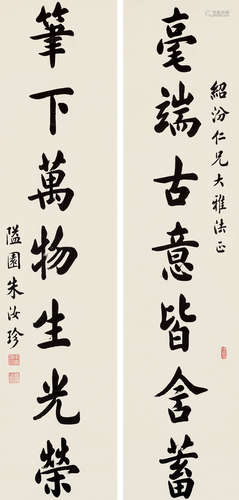 紹汾仁兄大雅法正
毫端古意皆含蓄
筆下萬物生光榮
隘園朱汝珍